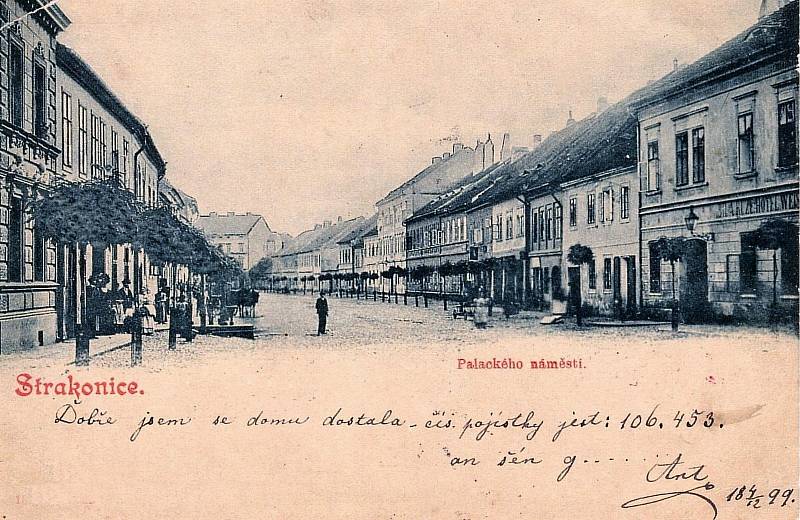 Palackého náměstí.
Strakonice.
Dobře jsem se domu dostala - čís. pojistky jest: 106.453.
an sén g.....
18 4/12 99.